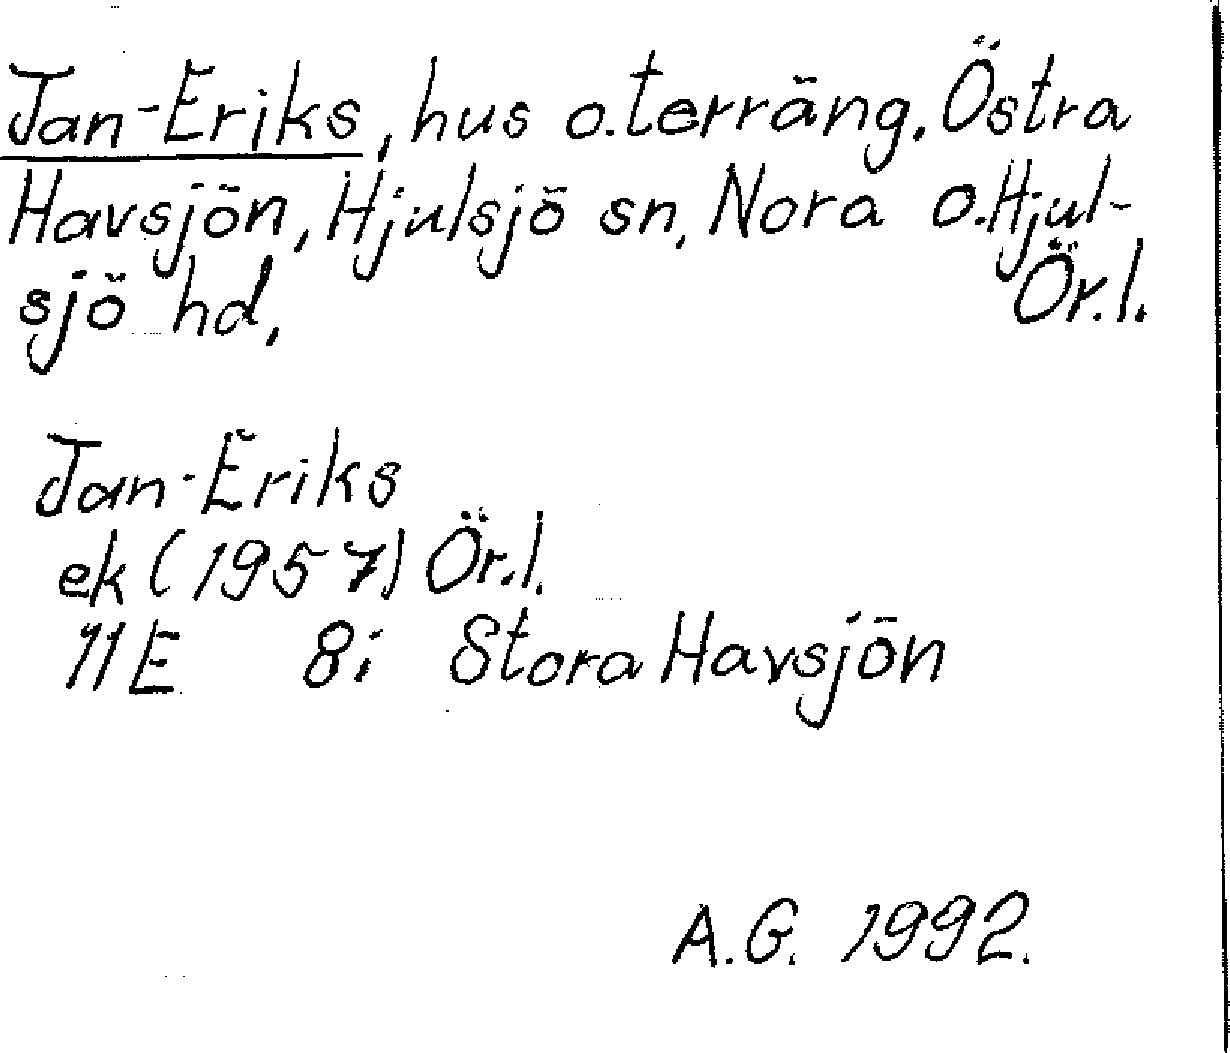 Jan-Eriks, hus o. terräng, Östra
Havsjön, Hjulsjö sn, Nora o. Hjul-
sjö hd, Ör.l.
Jan-Eriks
ek (1957) Ör.l.
11E 8i Stora Havsjön
A.G. 1992.